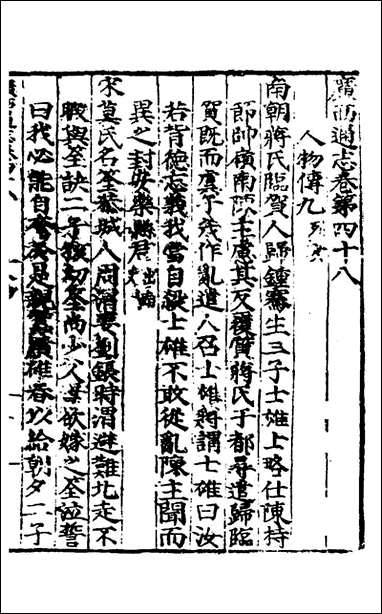 廣西通志卷第四十八
人物傳九列女
南朝蔣氏臨賀人歸鍾騫生三子士雄士略仕陳持
節帥嶺南陳主慮其反覆質蔣氏于都尋遣歸臨
賀既而虞子茂作亂遣人召士雄蔣謂士雄曰汝
若背德忘義我當自殺士雄不敢從亂陳主聞而
異之封安樂縣君
宋莫氏名荃恭城人周渭妻劉鋹時渭避難北走不
暇與荃訣二子孩幼荃尚少父母欲嫁之荃泣誓
曰我必能自奮於是親蠶績碓舂以給朝夕二子